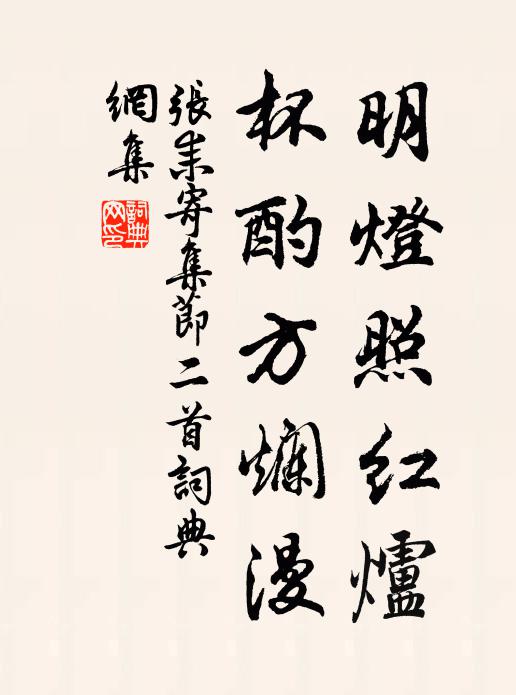 明燈照紅爐
杯酌方爛漫
張耒寄集節二首詞典
網集
詞典網印